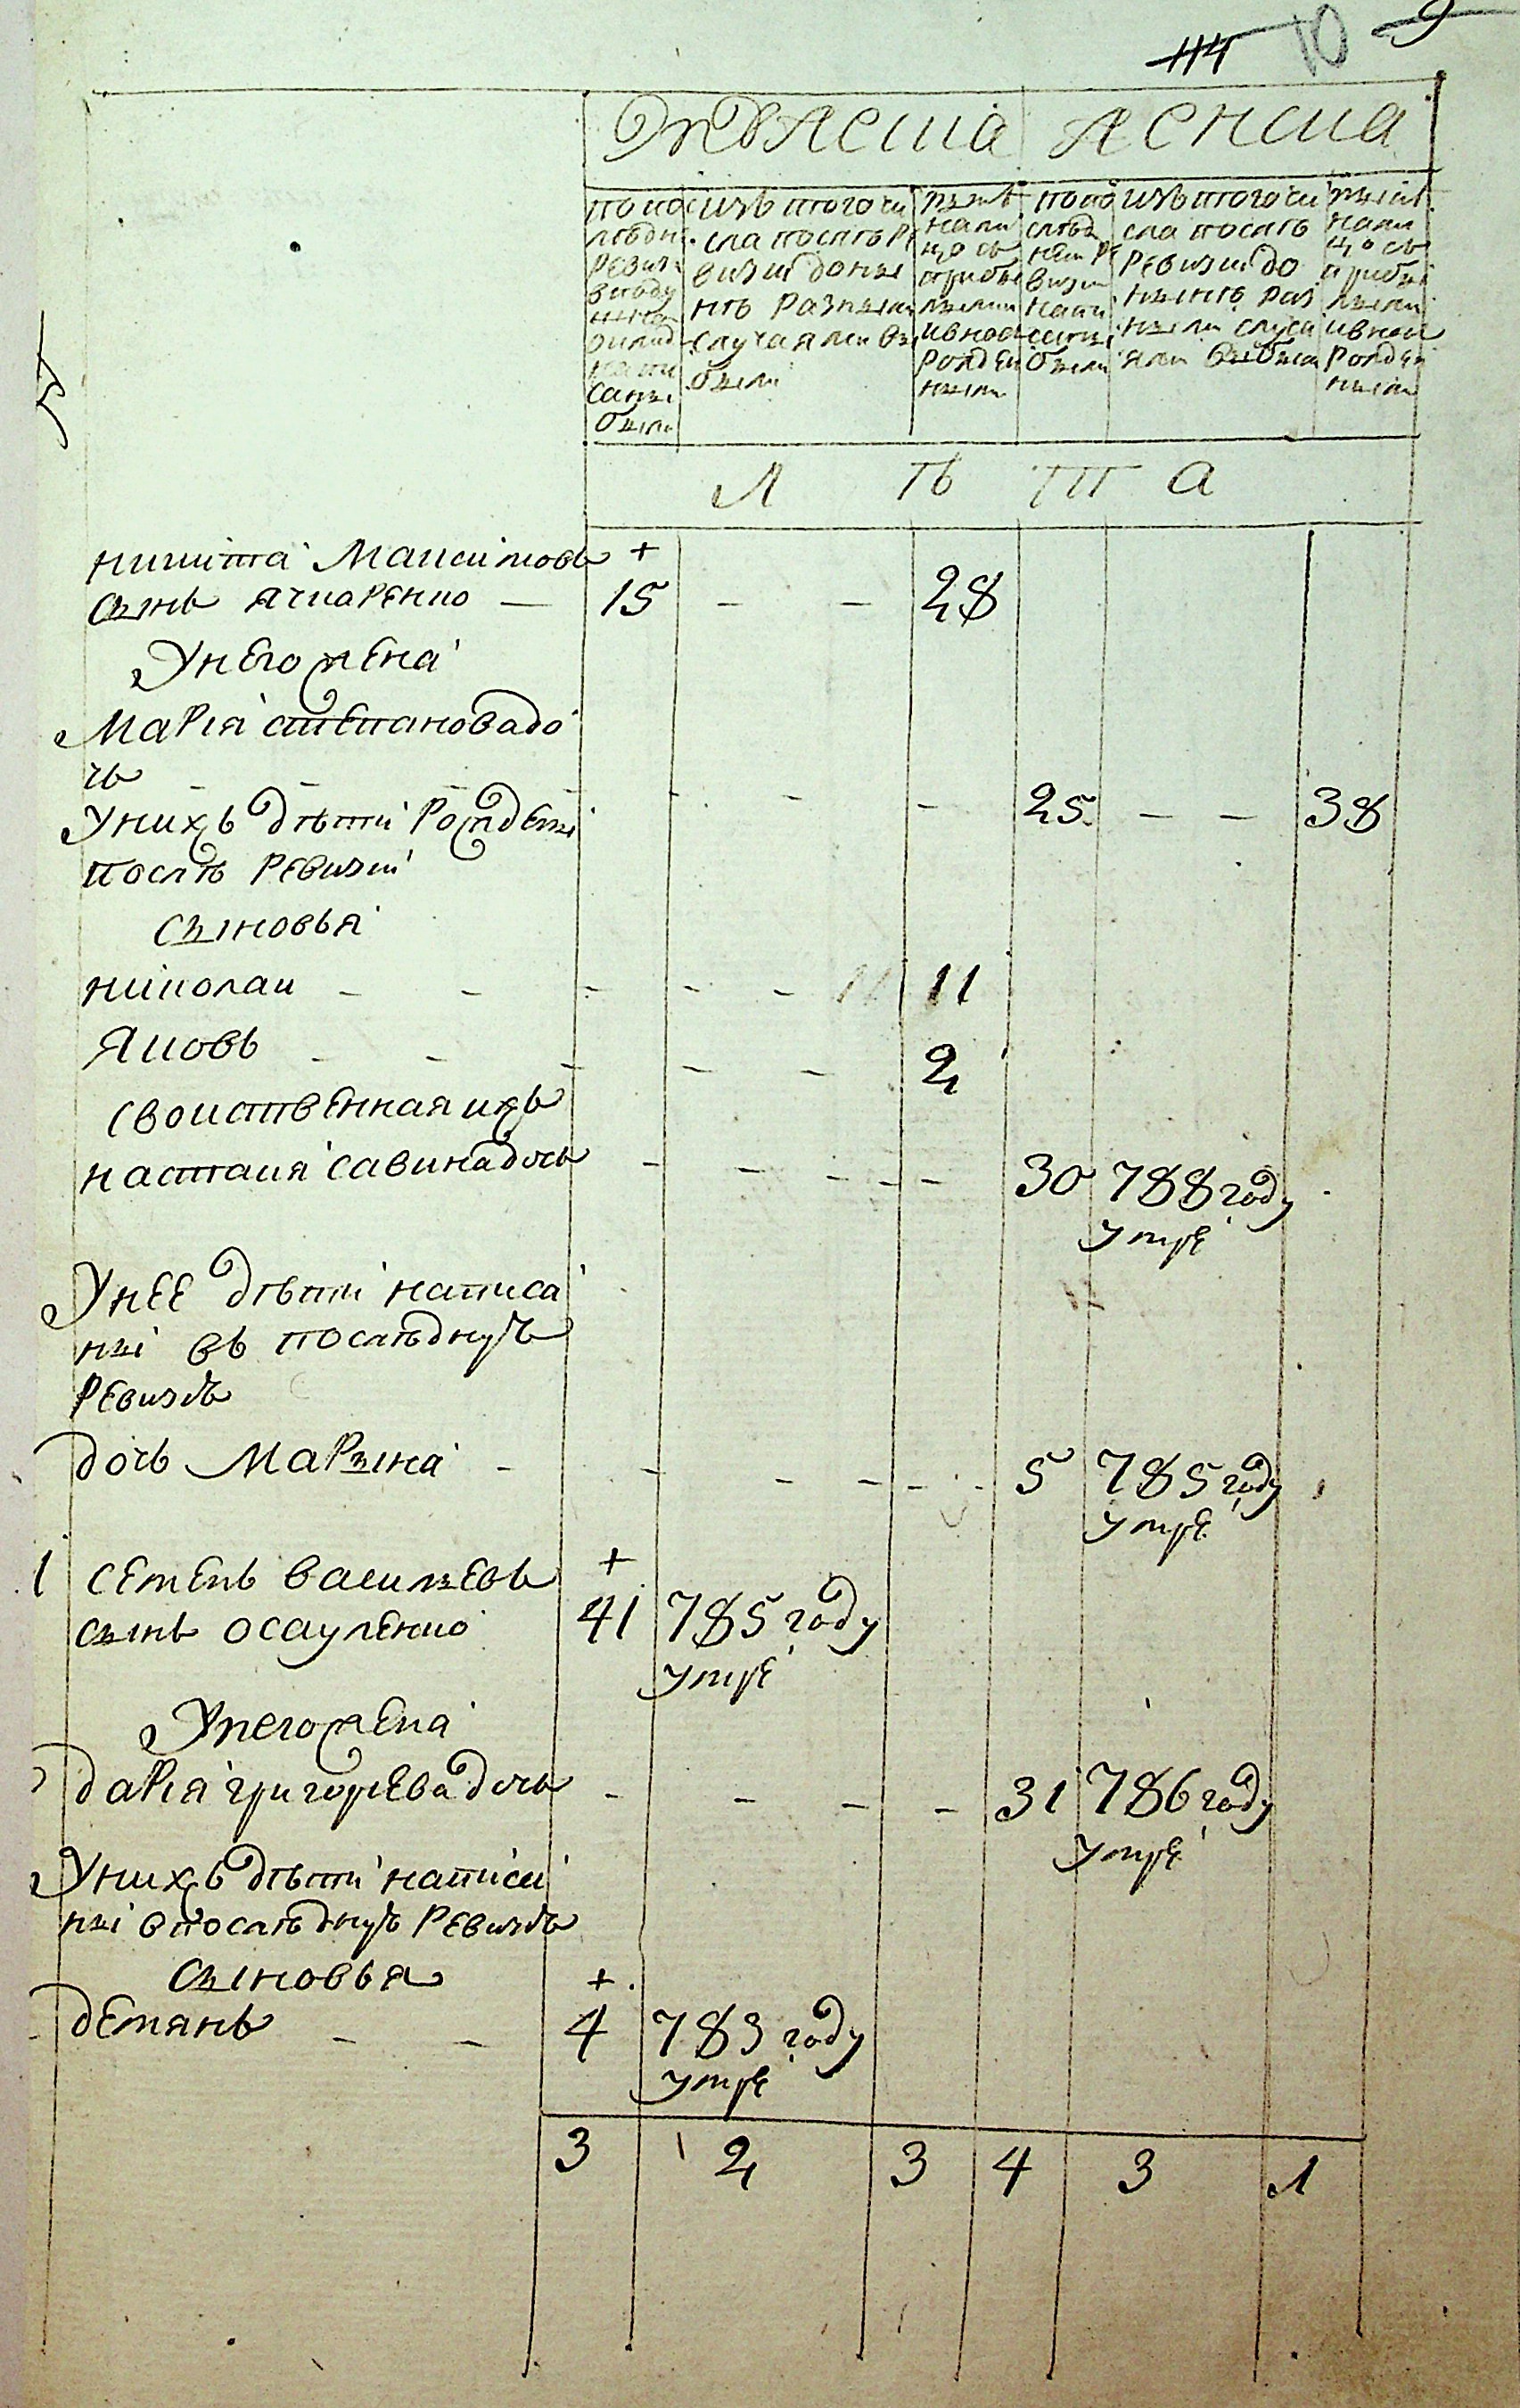 114 10 9
Мужеска женска
по по
слѣдне
ревизи
в подушном
окладѣ
напи
саны
были
изъ того чи
сла послѣ ре
визіи до ны
нѣ разными
случаями вы
были
нынѣ
нали
цо съ
прибы
лыми
и внов
рожден
ными
по по
слѣд
ней ре
визіи
напи
саны
были
изъ того чи
сла послѣ
ревизіи до
нынѣ раз
ными случа
ями выбыли
ныне
нали
цо съ
прибы
лыми
и вновь
рожден
ными
Л Ѣ Т А
никита Максимовъ +
сынъ ячкаренко — 15 - - 28
У него жена
Марія степанова до
чь - - - - - - - 25 - - 38
У нихъ дѣти рожденыі
послѣ ревизіи
сыновья
николаи - - - - - 11 11
Яковъ - - - - - 2
своиственная ихъ
настасия савина дочь - - - - - 30 788 году
умре
У нее дѣти написа
ныі въ последнуъ
ревизіъ
дочь Марына - - - - - - 5 785 году
умре
1 семенъ василʹевъ +
сынъ осауленко 41 785 году
умре
У него жена
дарія григорьева дочь - - - - 31 786 году
умре
У нихъ дѣти написа
ныі в послѣднуъ ревизіъ
сыновья +
демянъ - - 4 783 году
умре
3 2 3 4 3 1